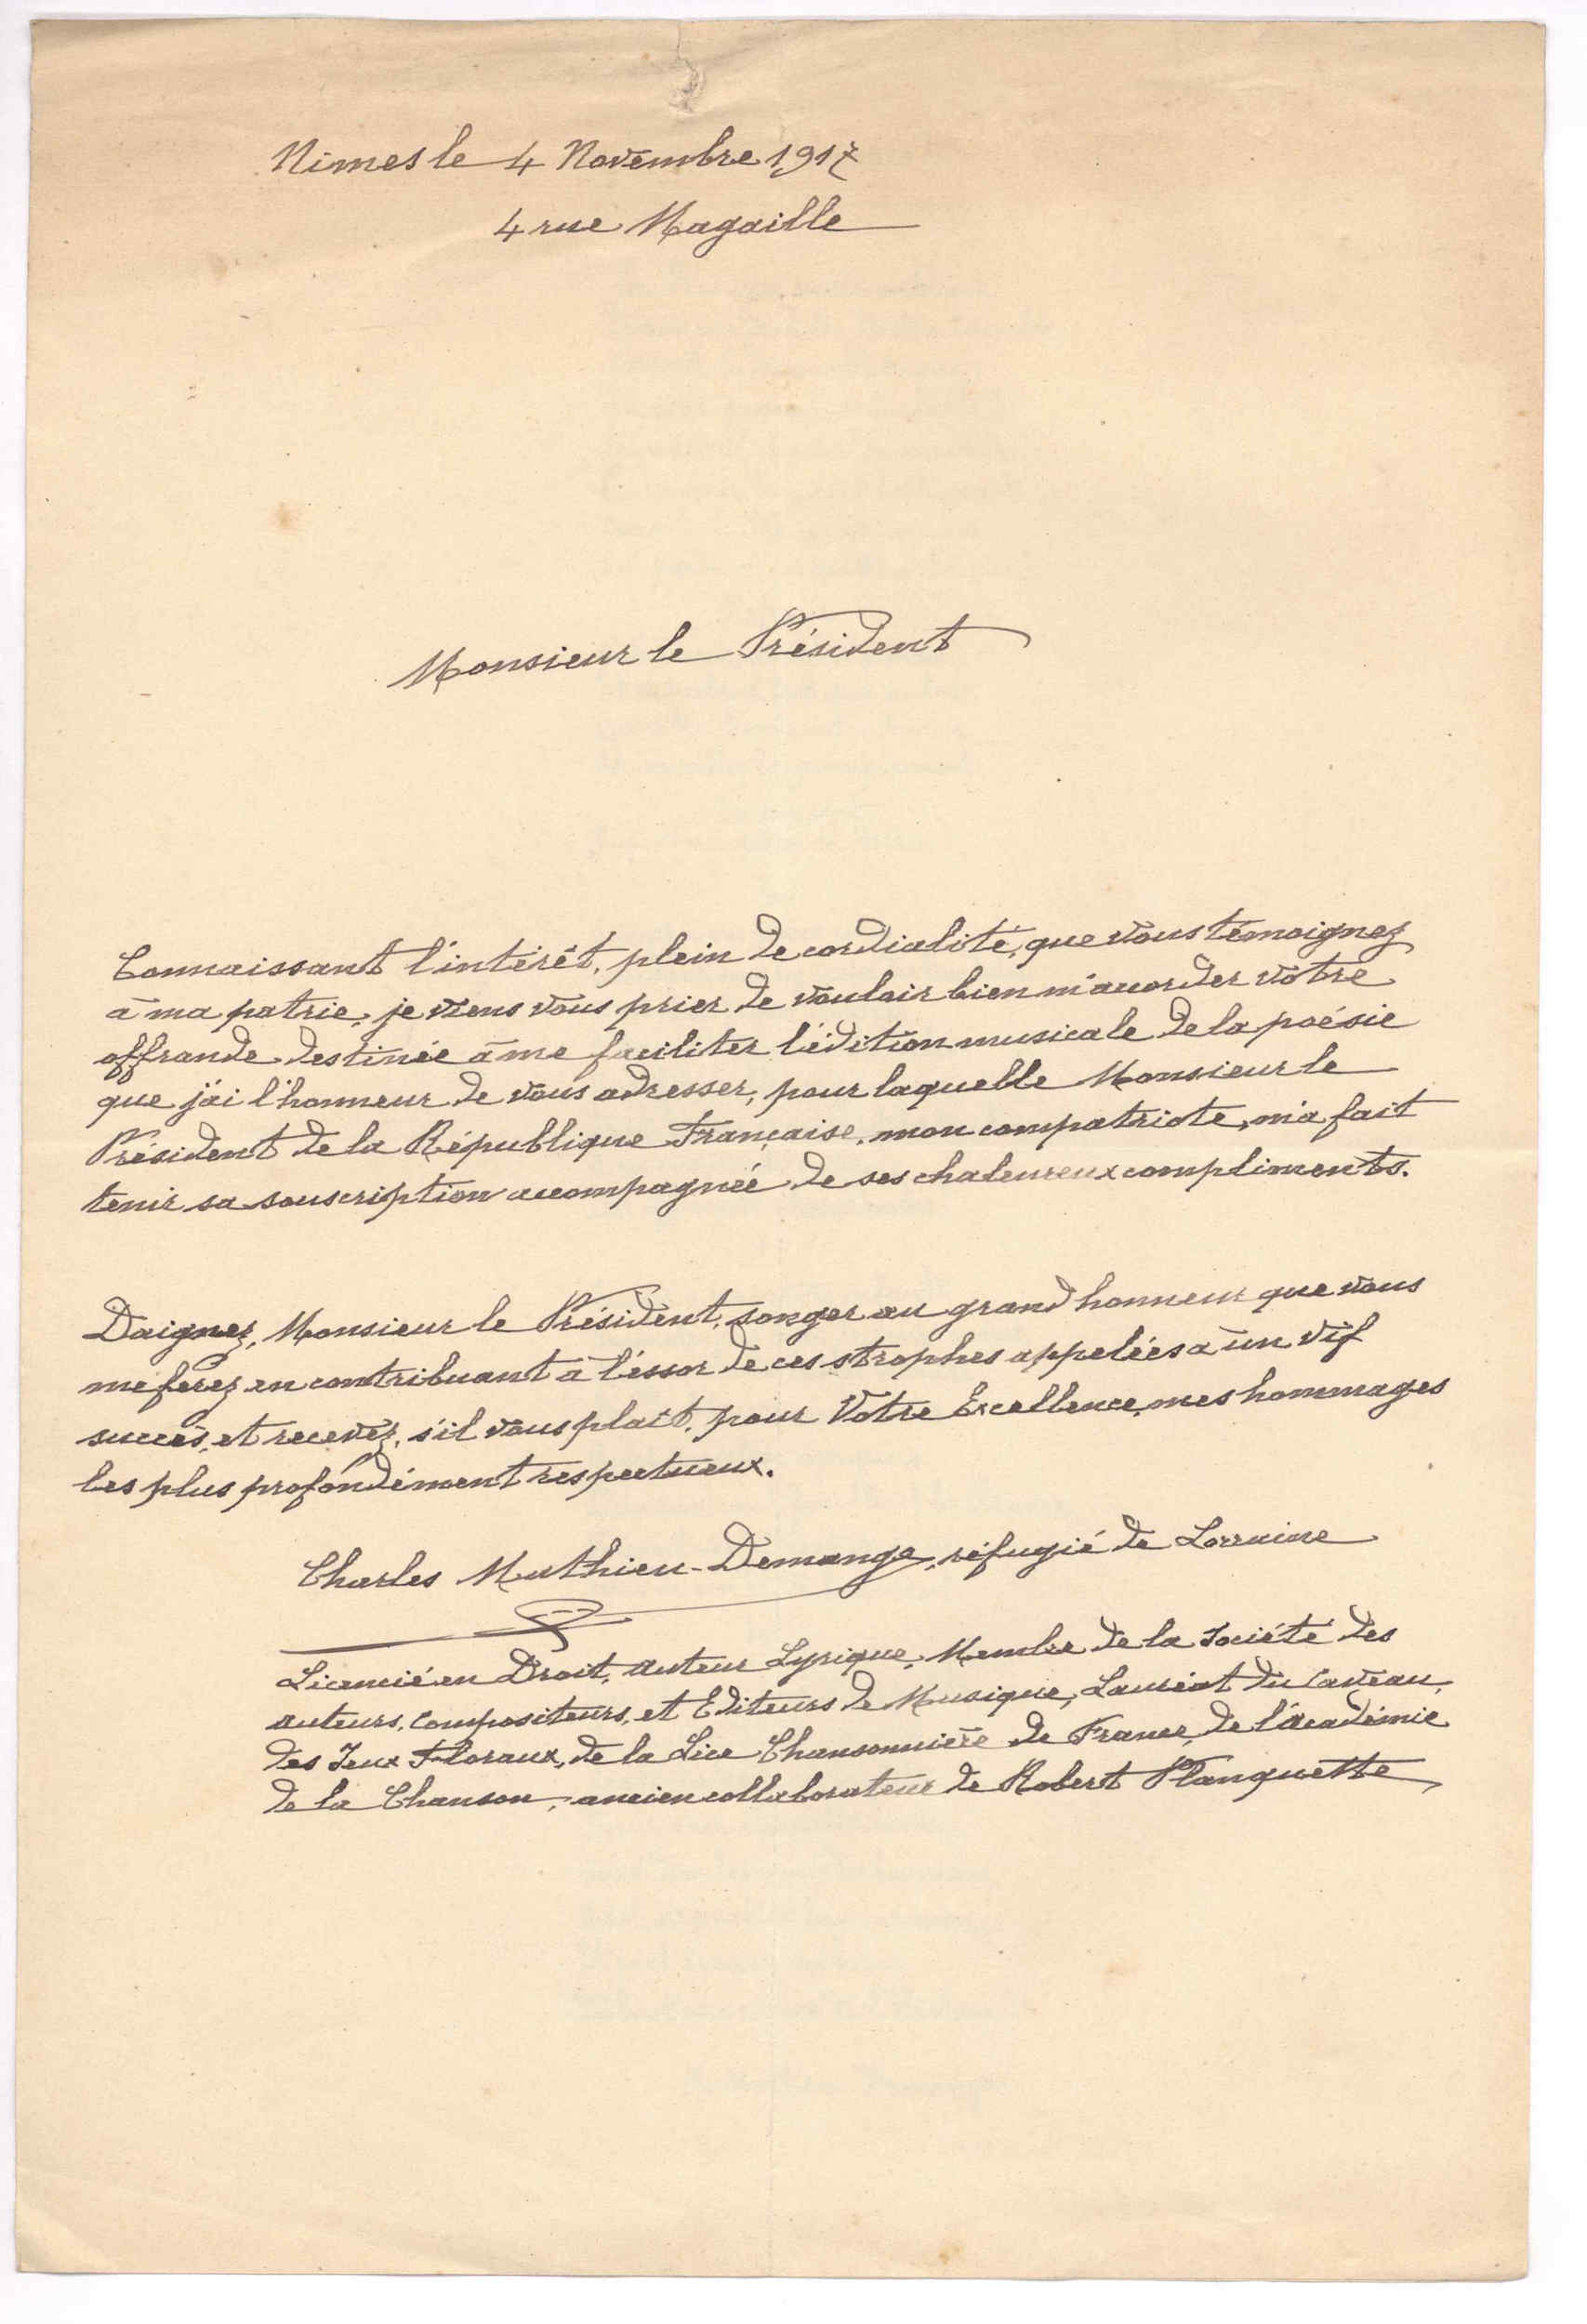 Nimes le 4 Novembre 1917
4 rue Magaille
Monsieur le Président
Connaissant l'intérêt, plein de cordialité, que vous témoignez
à ma patrie, je viens vous prier de vouloir bien m'accorder votre
offrande destinée à me faciliter l'édition musicale de la poésie
que j'ai l'honneur de vous adresser, pour laquelle Monsieur le
Président de la République Française, mon compatriote, m'a fait
tenir sa souscription accompagnée de ses chaleureux compliments.
Daignez, Monsieur le Président, songer au grand honneur que vous
me ferez en contribuant à l'éssor de ces strophes appelées à un vif
succès, et recevez, s'il vous plaît, pour Votre Excellence, mes hommages
les plus profondément respectueux.
Charles Mathieu-Demange, réfugié de Lorraine
Licencié en Droit, Auteur Lyrique, Membre de la Société des
Auteurs, Compositeurs, et Editeurs de Musique, Lauréat du Caveau,
des Jeux Floraux, de la Lice Chansonnière de France, de l'Académie
de la Chanson, ancien collaborateur de Robert Planquette